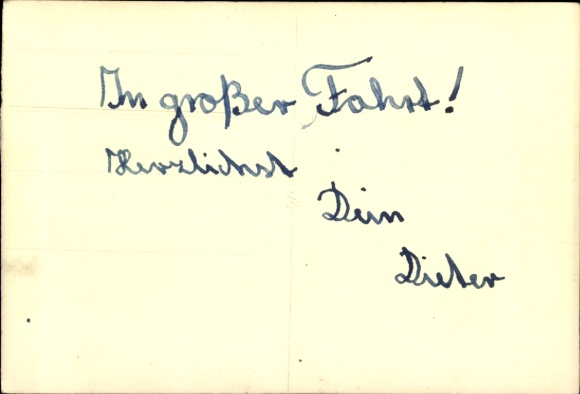 In großer Fahrt!
Herzlichst
Dein
Dieter